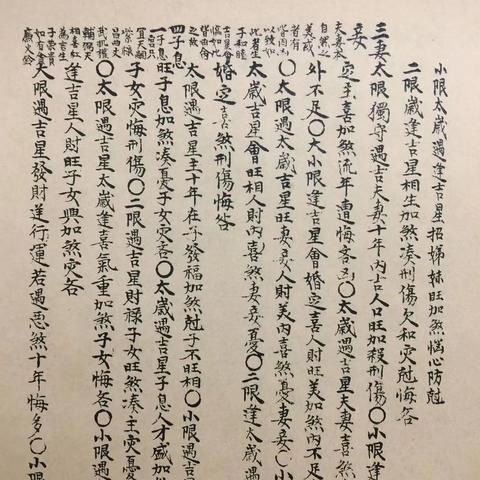 小限太歲遇逢吉星招娣妹旺加煞惱心防尅
二限歲逢吉星相生加煞湊刑傷欠和灾尅悔咎
三妻妾
夫妻本
自然之
美或
者有
皆内凶
以致如
此者生
子和睦
吉星會
惱如此
皆因命
之故
太限獨守遇吉夫妻十年内吉人口旺加殺刑傷〇小限逢
定主喜加煞流年遭悔吝
〇太歲遇吉星夫妻喜煞
外不足〇大小限逢吉星會婚定喜人財旺美加煞内不足
〇太限遇太歲吉星旺妻妾人財美内喜煞憂妻妾〇小限
太歲吉星會旺相人財内喜煞妻妾憂〇二限逢太歲遇
婚定吉煞刑傷悔咎
四子息
太限遇吉星主十年在子發福加煞尅子不旺相〇小限遇
一限旺子息加煞湊憂子女灾咎〇太歲遇吉星子息人才盛加
宜天
昌四文
武
輔弼天
相吉
為吉生
子崇貴
如有會
羸火鈴
子女灾悔刑傷〇二限遇吉星財祿子女旺煞湊主灾憂
〇太限遇吉星太歲逢喜氣重加煞子女悔咎〇小限遇
逢吉星人財旺子女興加煞灾咎
大限遇吉星發財達行運若遇惡煞十年悔多〇小限